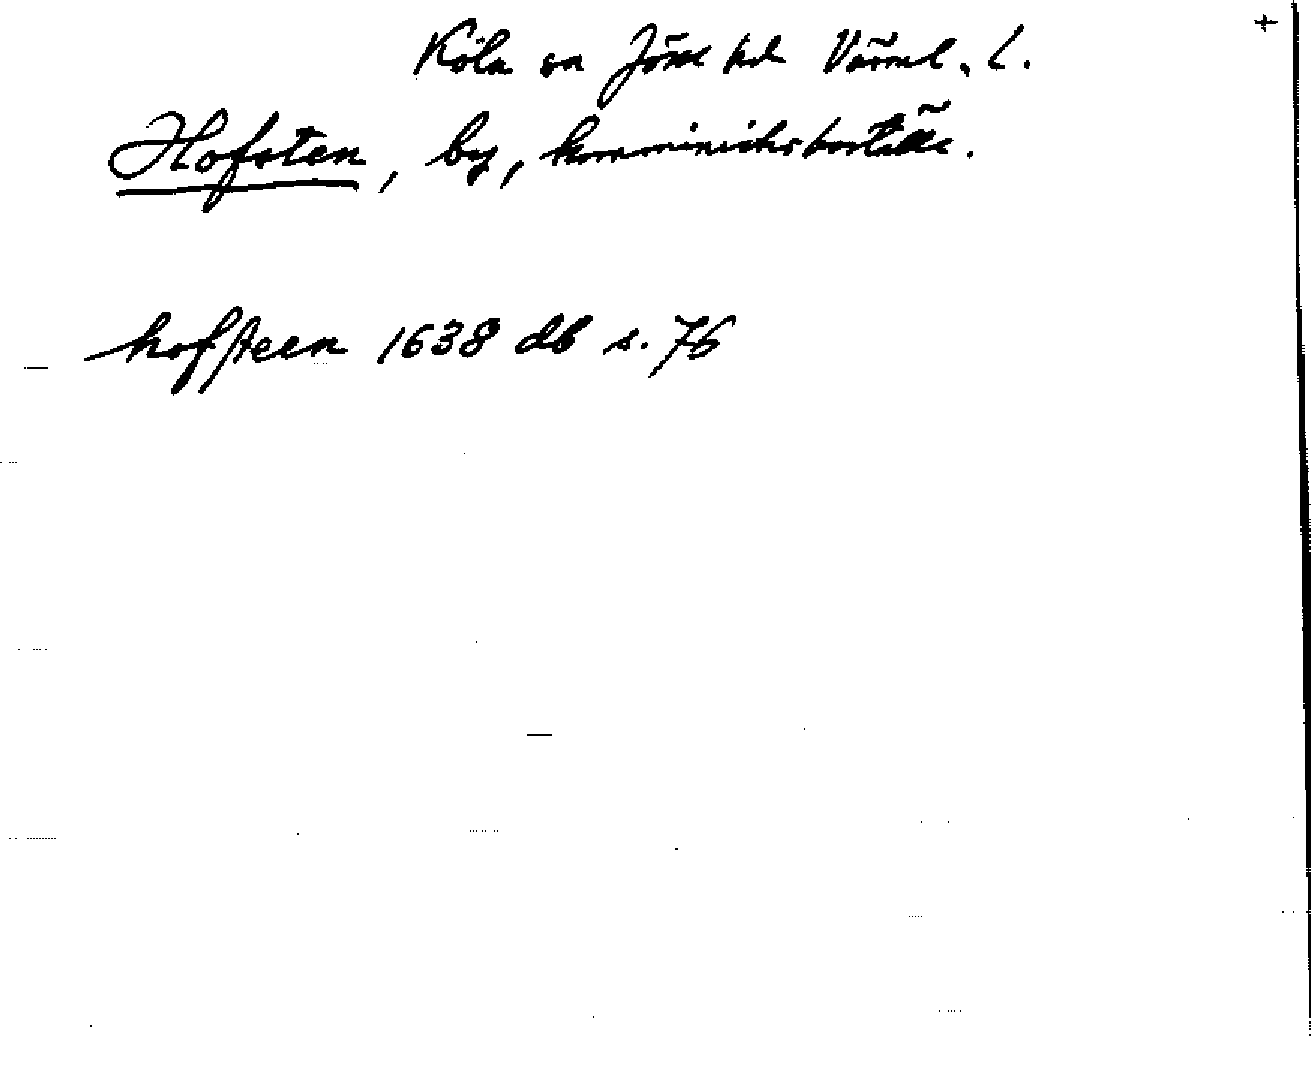 +
Köla sn Jösse hd Värml. L.
Hofsten, by, komministerboställe.
hofsteen 1638 db s. 76